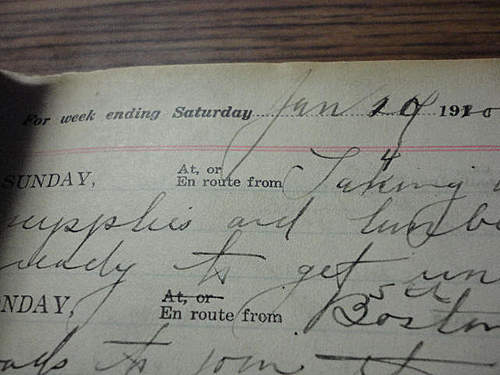 For week ending Saturday Jan 10 1910
SUNDAY, At, or En route from Taking
4
supplies and lumbe
ready to get un
5th
NDAY, At, or En route from Boston
to join